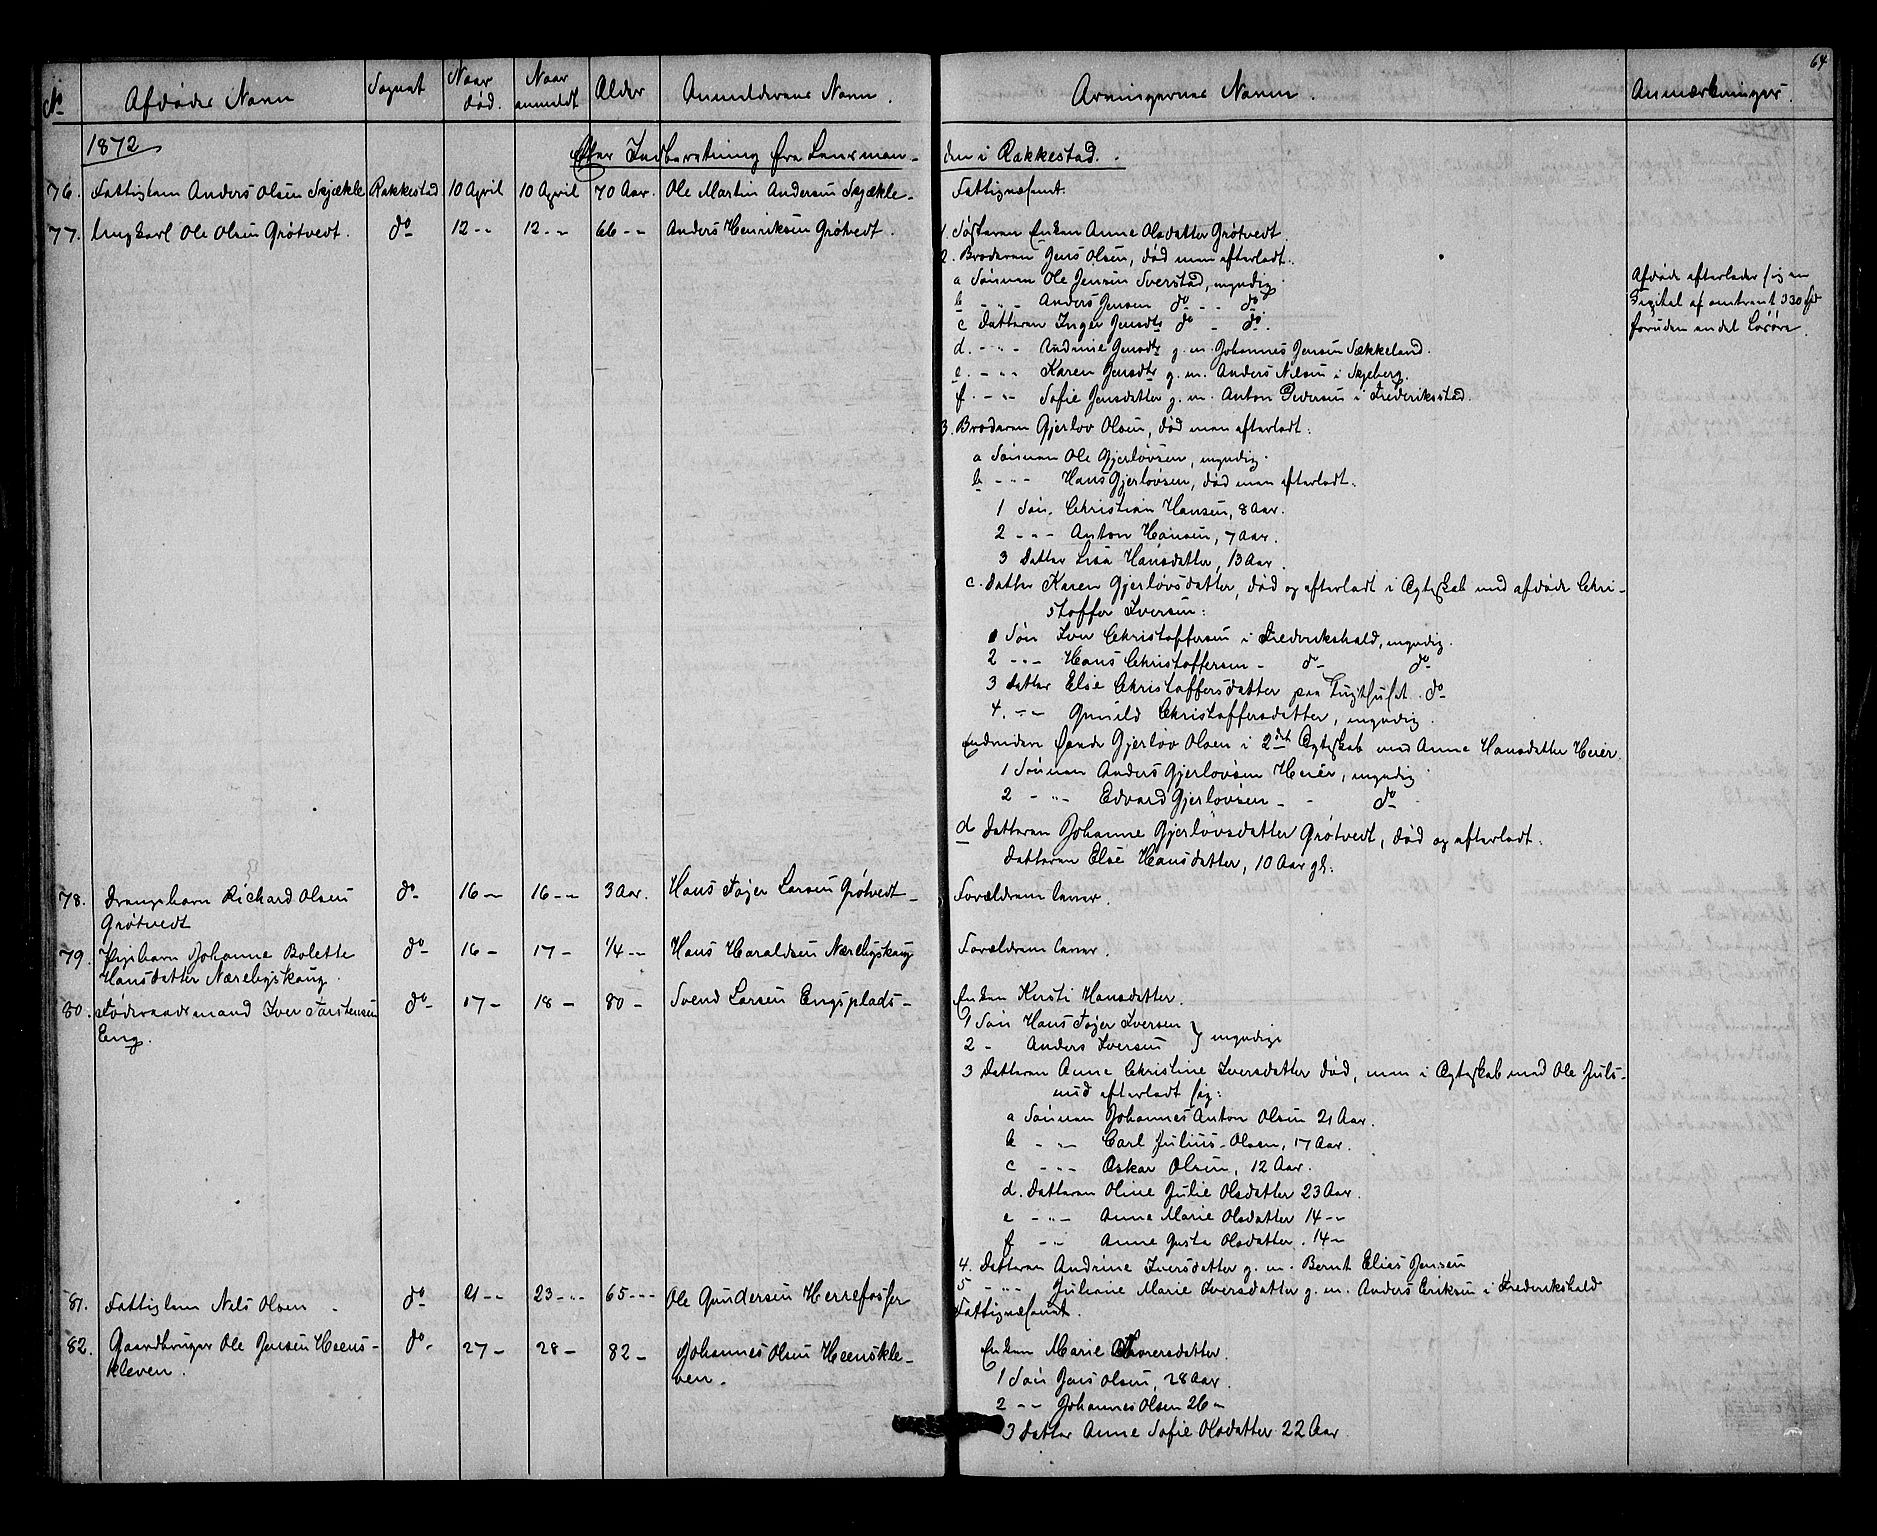 64
No Afdødes Navn Sognet Naar død. Naar anmeldt Alder Anmelderens Navn. Arvingernes Navn. Anmærkninger.
1872
Efter Indberetning fra Lensmanden i Rakkestad.
76. Fattiglem Anders Olsen Skjækle Rakkestad 10 April 10 April 70 Aar. Ole Martin Andersen Skjækle Fattigvæsenet.
77. Ungkarl Ole Olsen Grøtvedt. do 12 -"- 12 -"- 66 -"- Anders Henriksen Grøtvedt.
1. Søsteren Enken Anne Olsdatter Grøtvedt
2. Broderen Jens Olsen, død men efterladt:
a Sønnen Ole Jensen Sverstad, myndig
b -"- Anders Jensen do - - do
c Datteren Inger Jensdtr do - do.
d. -"- Andrine Jensdtr g. m. Johannes Jensen Sækkeland.
e. -"- Karen Jensdtr g. m. Anders Nilsen i Skjeberg.
f. -"- Sofie Jensdatter g. m. Anton Pedersen i Frederiksstad.
Afdøde efterlader sig en
Kapital af omtrent 330 Spd
foruden endel Løsøre.
3. Broderen Gjerløv Olsen, død men efterladt:
a Sønnen Ole Gjerløvsen, myndig.
b -"- Hans Gjerløvsen, død men efterladt.
1 Søn. Christian Hansen, 8 Aar.
2 -"- Anton Hansen, 7 Aar.
3 Datter Lisa Hansdatter, 13 Aar
c. Datter Karen Gjerløvsdatter, død og efterladt i Ægteskab med afdøde Chri-
stoffer Iversen:
1 Søn Iver Christoffersen i Frederikshald, myndig.
2 -"- Hans Christoffersen - do - do
3 Datter Else Christoffersdatter paa Tugthuset do
4. -"- Gunild Christoffersdatter, myndig.
Endvidere havde Gjerløv Olsen i 2det Ægteskab med Anne Hansdatter Heier
1 Sønnen Anders Gjerløvsen Heier, myndig
2 -"- Edvard Gjerløvsen - - do
d Datteren Johanne Gjerløvsdatter Grøtvedt, død og efterladt:
Datteren Else Hansdatter, 10 Aar gl.
78. Drengebarn Richard Olsen do 16 - 16 -"- 3 Aar. Hans Tøjer Larsen Grøtvedt - Forældrene lever.
Grøtvedt
79. Pigebarn Johanne Bolette do 16 - 17 - 1/4 -"- Hans Haraldsen Nærebyskoug Forældrene lever.
Hansdatter Nærebyskoug.
80. Føderaadsmand Iver Torstensen do 17 - 18 - 80 - Svend Larsen Engsplads - Enken Kirsti Hansdatter.
Eng.
1 Søn Hans Tøjer Iversen } myndige
2 - Anders Iversen
3 Datteren Anne Christine Iversdatter død, men i Ægteskab med Ole Juls-
rud efterladt sig:
a Sønnen Johannes Anton Olsen 21 Aar.
b -"- Carl Julius Olsen, 17 Aar.
c -"- Oskar Olsen, 12 Aar.
d. Datteren Oline Julie Olsdatter 23 Aar.
e -"- Anne Marie Olsdatter 14 -"-
f -"- Anne Gusta Olsdatter. 14 -
4. Datteren Andrine Iversdatter g. m. Bernt Elias Jensen
5 -"- Juliane Marie Iversdatter g. m. Anders Eriksen i Frederikshald
81. Fattiglem Nels Olsen - do 21 -"- 23 -"- 65 -"- Ole Gundersen Herrefosser Fattigvæsenet.
82. Gaardbruger Ole Jensen Heens- do 27 - 28 - 82 - Johannes Olsen Heenskle- Enken Marie Thoresdatter.
kleven. ven.
1 Søn Jens Olsen, 28 Aar.
2 -"- Johannes Olsen 26 -
3 Datter Anne Sofie Olsdatter 22 Aar